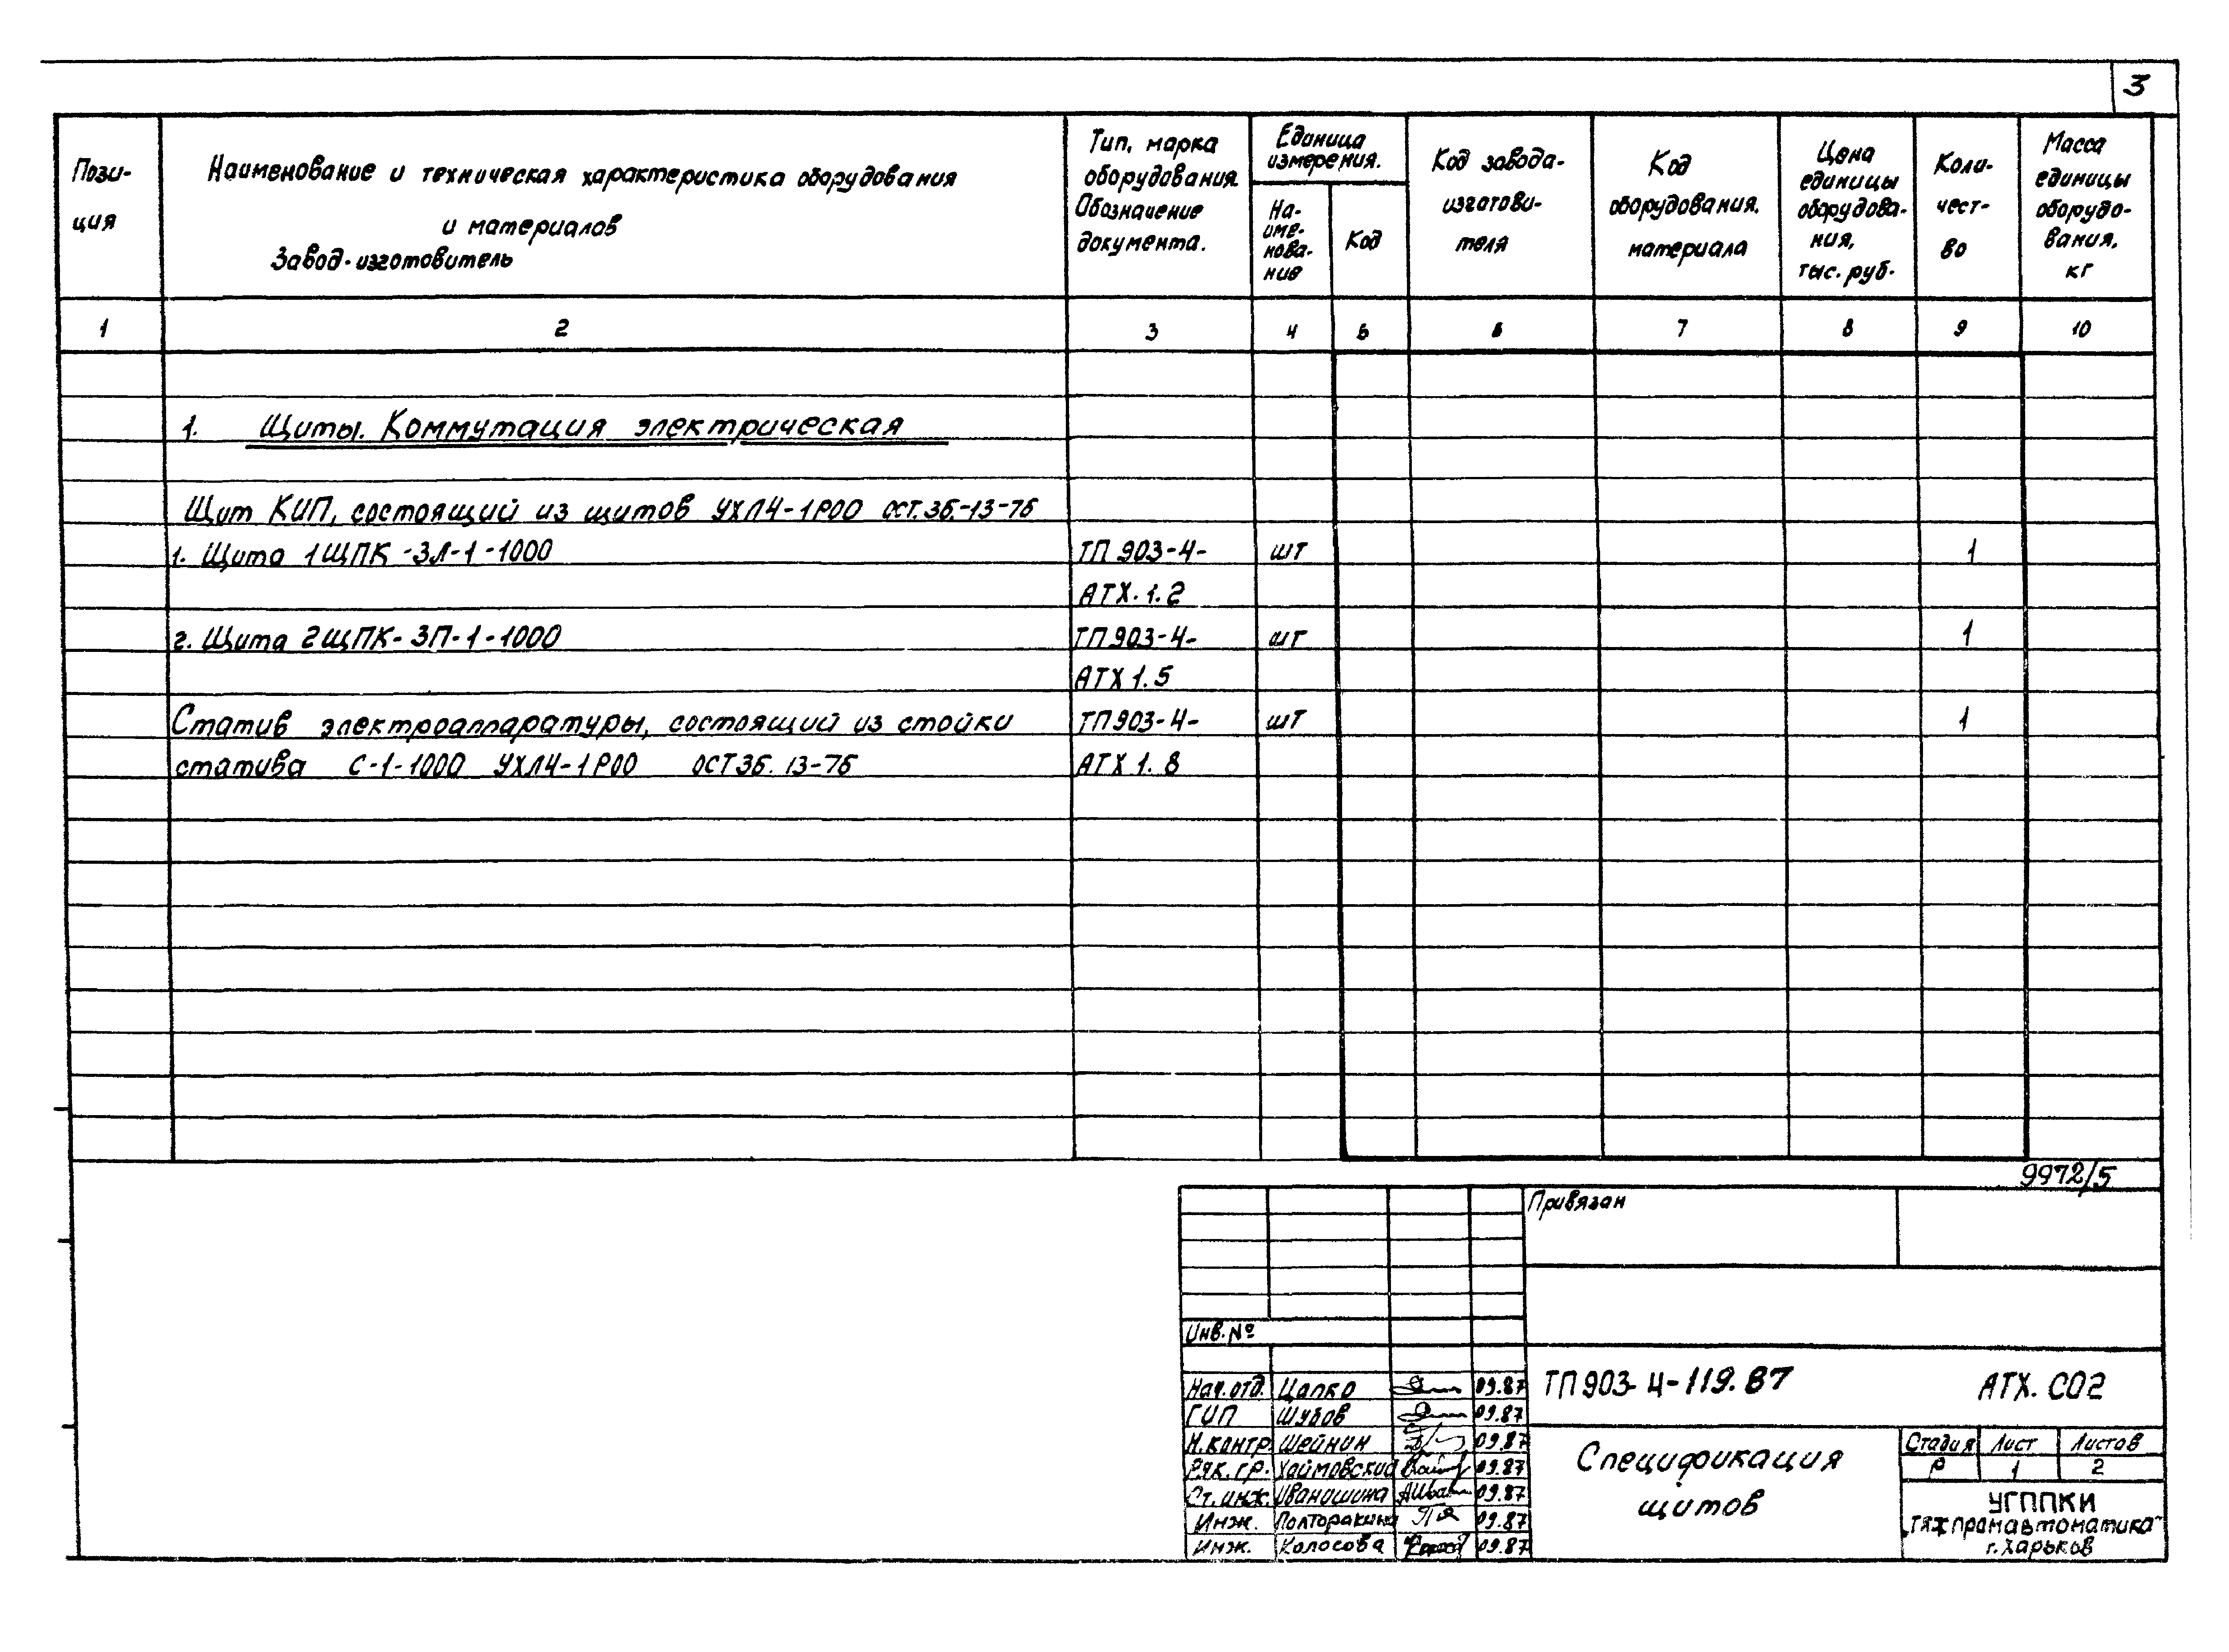 3
Пози-
ция
Наименование и техническая характеристика оборудования
и материалов
Завод-изготовитель
Тип, марка
оборудования.
Обозначение
документа.
Единица
измерения.
На-
име-
нова-
ние
Код
Код завода-
изготови-
теля
Код
оборудования,
материала
Цена
единицы
оборудова-
ния,
тыс. руб.
Коли-
чест-
во
Масса
единицы
оборудо-
вания,
кг
1 2 3 4 5 6 7 8 9 10
1. Щиты. Коммутация электрическая
Щит КИП, состоящий из щитов УХЛ4-1Р00 ОСТ.36.-13-76
1. Щита 1ЩПК-ЗЛ-1-1000 ТП 903-4- шт 1
АТХ.1.2
2. Щита 2ЩПК-ЗП-1-1000 ТП 903-4- шт 1
АТХ 1.5
Статив электроаппаратуры, состоящий из стойки ТП 903-4- шт 1
статива С-1-1000 УХЛ4-1Р00 ОСТ 36. 13-76 АТХ 1.8
9972/5
Привязан
Инв. №
Нач. отд. Цапко 09.87
ГИП Шубов 09.87
Н.контр. Шейнин 09.87
Рук. гр. Хаймовский 09.87
Ст. инж. Иванишина 09.87
Инж. 09.87
Инж. Колосова 09.87
ТП 903-4-119.87 АТХ. СО2
Спецификация
щитов
Стадия Лист Листов
Р 1 2
УГППКИ
"Тяжпромавтоматика"
г. Харьков